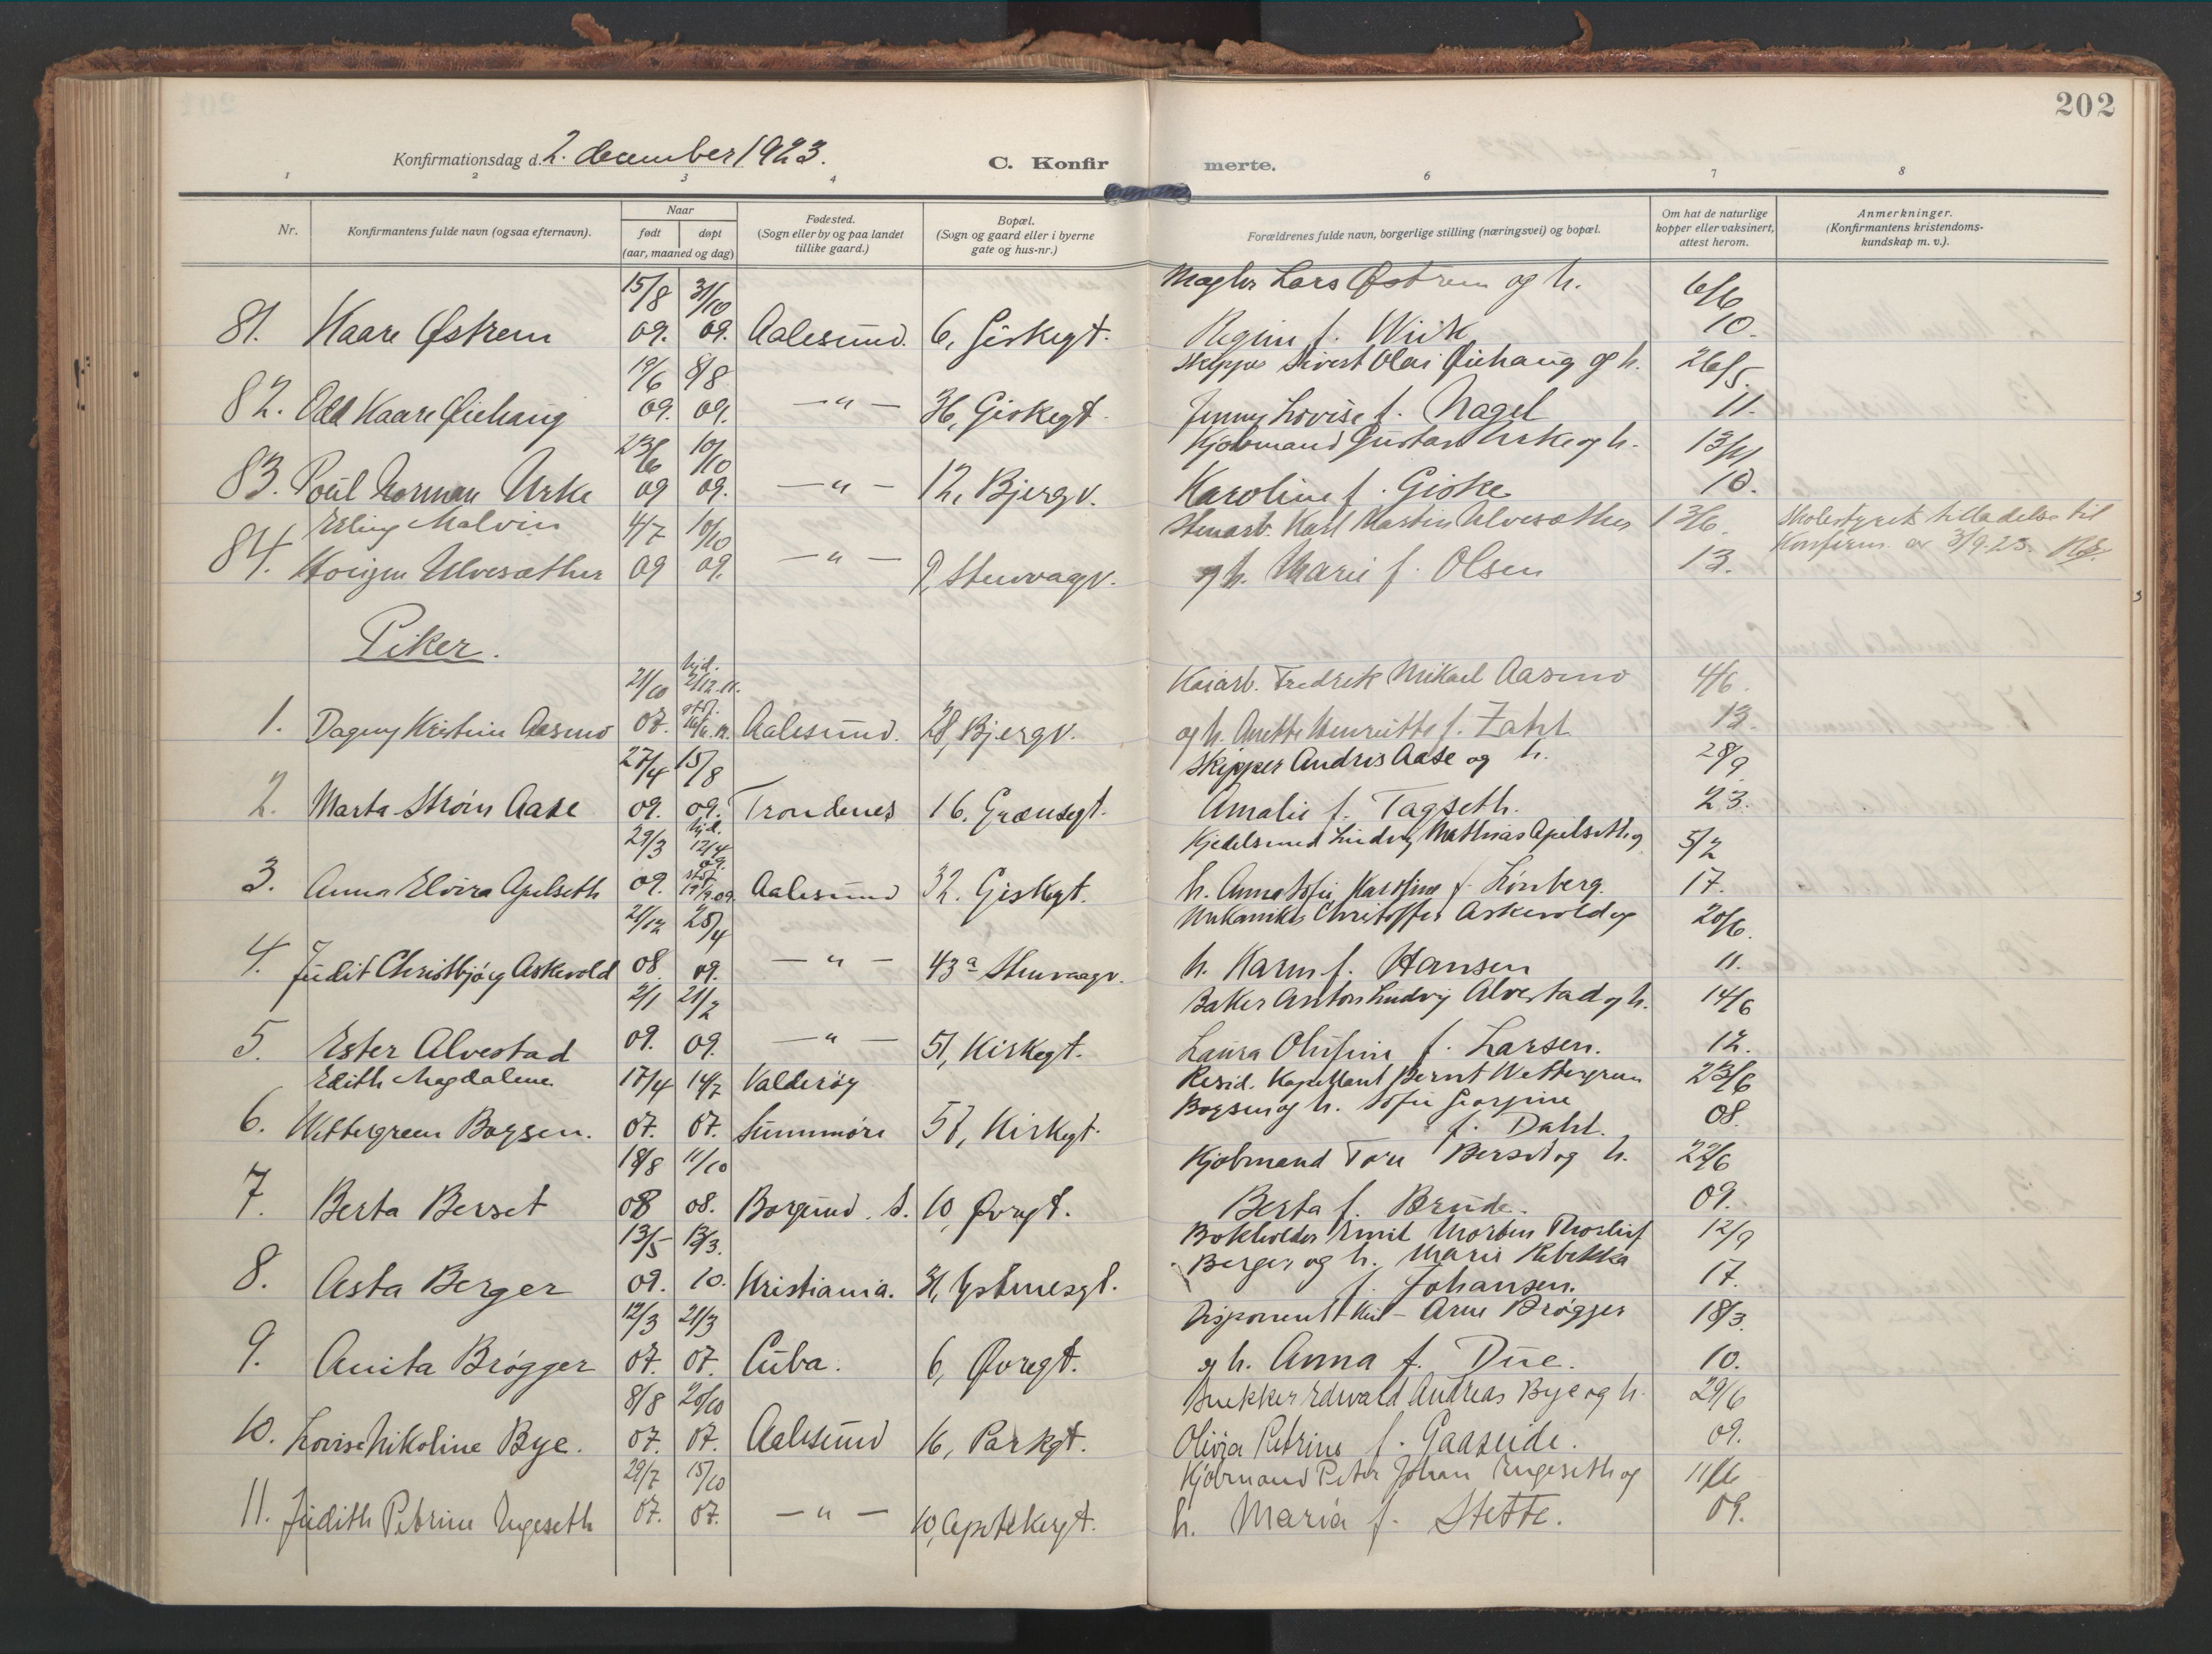 202
Konfirmationsdag d. 2. december 1923.
C. Konfirmerte.
1 2 3 4 6 7 8
Nr.
Konfirmantens fulde navn (ogsaa efternavn).
Naar
født døpt
(aar, maaned og dag)
Fødested.
(Sogn eller by og paa landet
tillike gaard.)
Bopæl.
(Sogn og gaard eller i byerne
gate og hus-nr.)
Forældrenes fulde navn, borgerlige stilling (næringsvei) og bopæl.
Om hat de naturlige
kopper eller vaksinert,
attest herom.
Anmerkninger.
(Konfirmantens kristendoms-
kundskap m. v.).
15/8 31/10 Mægler Lars Østrem og h. 6/6
81. Kaare Østrem 09. 09. Aalesund. 6, Giskegt. f. Wiik 10.
19/6 8/8 Sivert Olai Øiehaug og h. 26/5.
82. Odd Kaare Øiehaug 09. 09. —"— 36, Giskegt. Jenny Lovise f. Nagel 11.
23/6 10/10 Kjøbmand Gustav Urke og h. 13/11
83. Poul Norman Urke 09 09. —"— 12, Bjergv. Karoline f. Giske 10.
Erling Malvin 4/7 10/10 Stenarb. Karl Martin Ulvesæther 13/6. Skolestyrets tilladelse til
84. Ulvesæther 09 09. —"— 9, Stenvaagv. og h. Marie f. Olsen 13. Konfirm. av 3/9.23.
Piker.
21/10 hjd. 21/12.11. Kaiarb. Fredrik Mikael Aasmo 4/6.
1. Dagny Kristine Aasmo 07. stf. Aalesund. 28, Bjergv. og h. Anette Henriette f. Zahl 13.
27/4 15/8 Skipper Andris Aase og h. 28/9
2. Marta Strøm Aase 09. 09. Trondenes 16. Grænsegt. Amalie f. Tagseth. 23.
29/3 hjd. 12/4 09. Kjedelsmed Ludvig Mathias Apelseth og 5/2
3. Anna Elvira Apelseth 09. stf. 19/9.09. Aalesund 32. Giskegt. h. Anna Sofie Karoline f. Lønberg. 17.
21/12 25/4 Mekaniker Christoffer Askevold og 20/6.
4. Judit Christbjørg Askevold 08 09. —"— 43a Stenvaagv. h. Karen f. Hansen 11.
2/1 21/2 Baker Anton Ludvig Alvestad og h. 14/6
5. Ester Alvestad 09. 09. —"— 51, Kirkegt. Laura Olufine f. Larsen. 12.
Edith Magdalene 17/4 14/7 Valderøy Resid. Kapellant Bernt Wettergreen 23/6
6. Wettergreen Bøysen. 07. 07. Søndmøre 58, Kirkegt. Bøysen og h. Sofie Georgine f. Dahl. 08.
18/8 11/10 Kjøbmand Tore Berset og h. 22/6
7. Berta Berset 08 08. Borgund. S. 10, Øvregt. Berta f. Brude. 09.
13/5 13/3. Bokholder Emil Morten Thorleif 12/9
8. Asta Berger 09. 10. Kristiania. 31, Ystenesgt. Berger og h. Marie Rebekka f. Johansen. 17.
12/3 21/3 Disponent Arne Brøgger 18/3.
9. Anita Brøgger 07. 07. Cuba. 6, Øvregt. og h. Anna f. Due. 10.
8/8 20/10 Snekker Edevald Andreas Bye og h. 29/6
10. Lovise Nikoline Bye. 07. 07. Aalesund 16, Parkgt. Olivia Petrine f. Gaaseide. 09.
29/7 15/10 Kjøbmand Peter Johan Engeseth og 11/6
11. Judith Petrine Engeseth 07. 07. —"— 10, Apotekergt. h. Maria f. Stette. 09.